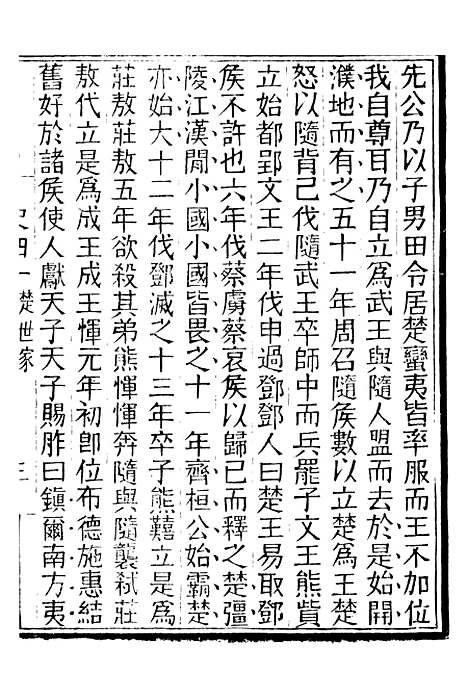 先公乃以子男田令居楚蠻夷皆率服而王不加位
我自尊耳乃自立爲武王與隨人盟而去於是始開
濮地而有之五十一年周召隨侯數以立楚爲王楚
怒以隨背己伐隨武王卒師中而兵罷子文王熊貲
立始都郢文王二年伐申過鄧鄧人曰楚王易取鄧
侯不許也六年伐蔡虜蔡哀侯以歸已而釋之楚彊
陵江漢閒小國小國皆畏之十一年齊桓公始霸楚
亦始大十二年伐鄧滅之十三年卒子熊囏立是爲
莊敖莊敖五年欲殺其弟熊惲惲奔隨與隨襲弒莊
敖代立是爲成王成王惲元年初卽位布德施惠結
舊好於諸侯使人獻天子天子賜胙曰鎮爾南方夷
史四一楚世家
三